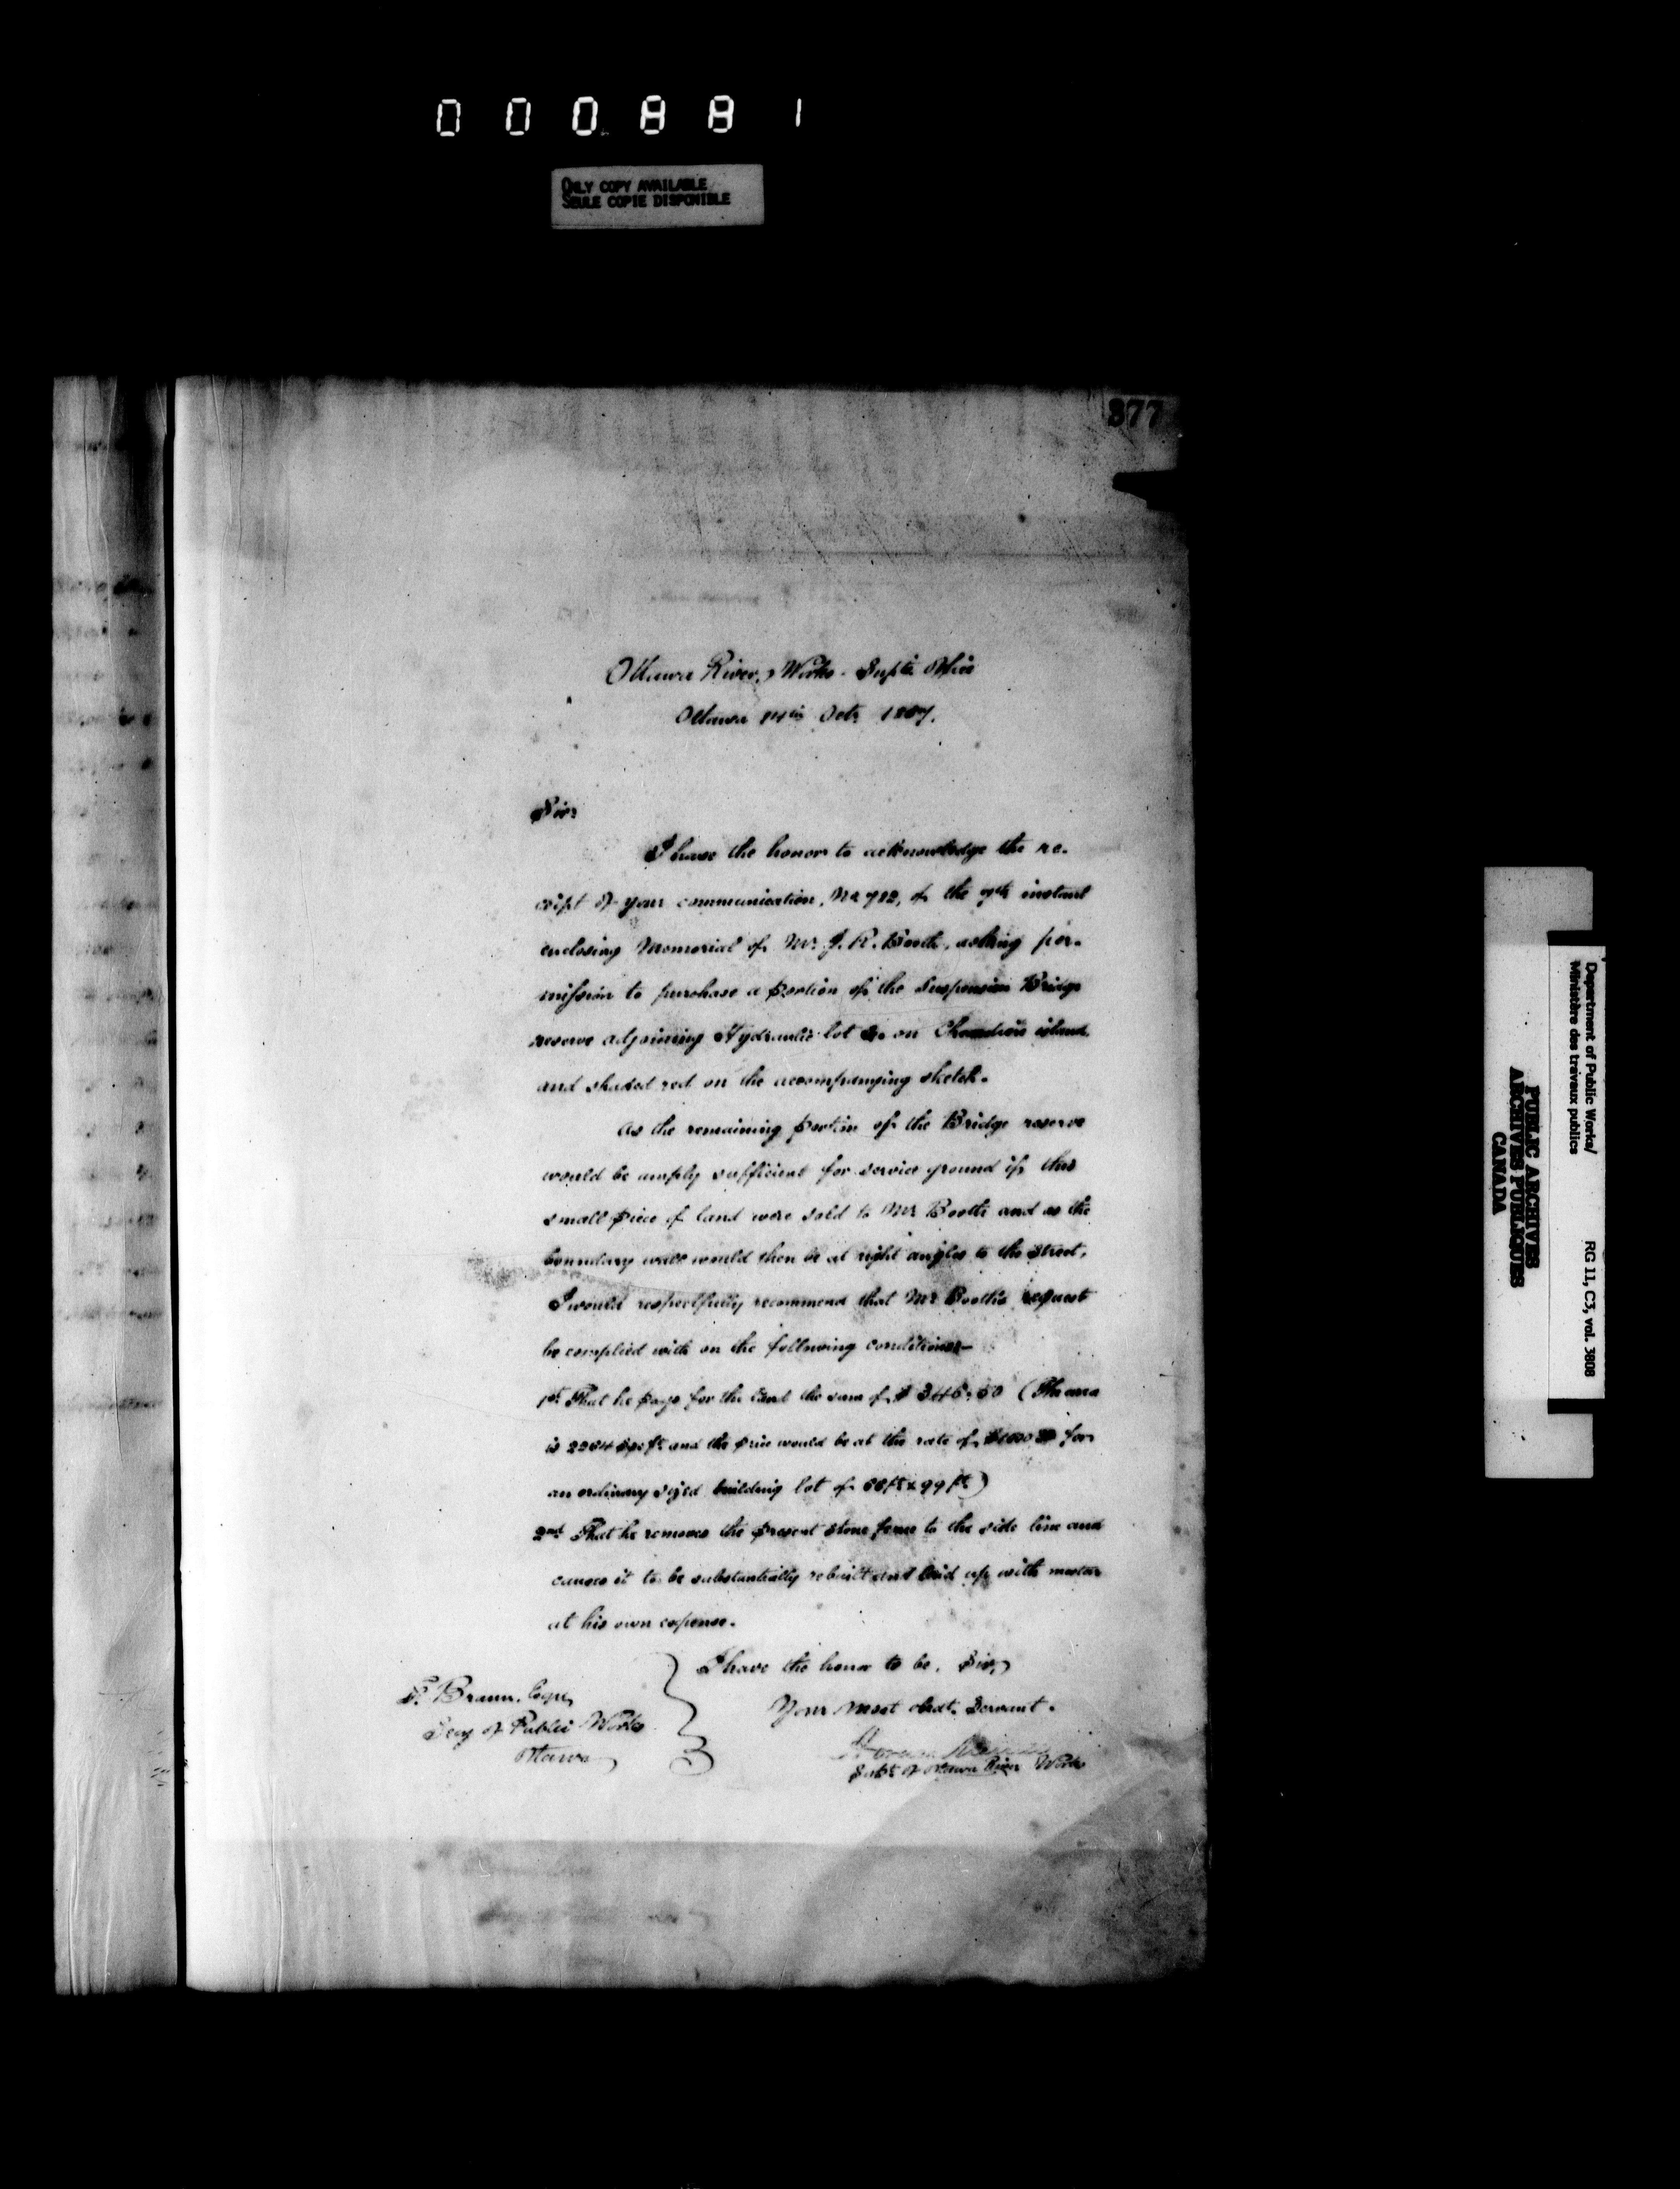 000881
ONLY COPY AVAILABLE
SEULE COPIE DISPONIBLE
377
Ottawa River Works. Supts. Office
Ottawa 14th Octr. 1867.
Sir,
I have the honor to acknowledge the re-
ceipt of your communication, No 722, of the 7th instant
enclosing Memorial of Mr. J. R. Booth, asking per-
mission to purchase a portion of the Suspension Bridge
reserve adjoining Hydraulic lot on Chaudiere island
and shaded red on the accompanying sketch.
As the remaining portion of the Bridge reserve
would be amply sufficient for service ground if this
small piece of land were sold to Mr Booth and as the
boundary would then be at right angles to the Street,
I would respectfully recommend that Mr Booth's request
be complied with on the following conditions—
1st. That he pays for the land the sum of $ 346.50 (The area
is and the price would be at the rate of $1000 for
an ordinary sized building lot of 66 ft x 99 ft)
2nd That he removes the present stone fence to the side line and
causes it to be substantially rebuilt and laid up with mortar
at his own expense.
I have the honor to be, Sir,
Your most obdt. Servant.
F. Braun, Esqre,
Secy of Public Works
Ottawa
Supt. of Ottawa River Works
Department of Public Works/
Ministère des travaux publics
RG 11, C3, vol. 3808
PUBLIC ARCHIVES
ARCHIVES PUBLIQUES
CANADA